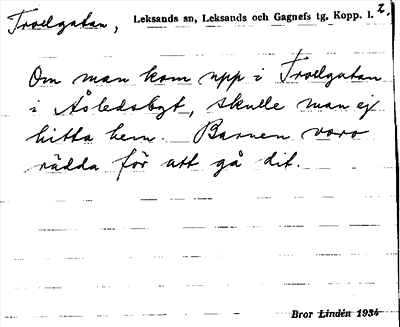 Trollgatan, Leksands sn, Leksands och Gagnefs tg, Kopp. l. 2.
Om man kom upp i Trollgatan
i Åsledsbyt, skulle man ej
hitta hem. Barnen voro
rädda för att gå dit.
Bror Lindén 1934